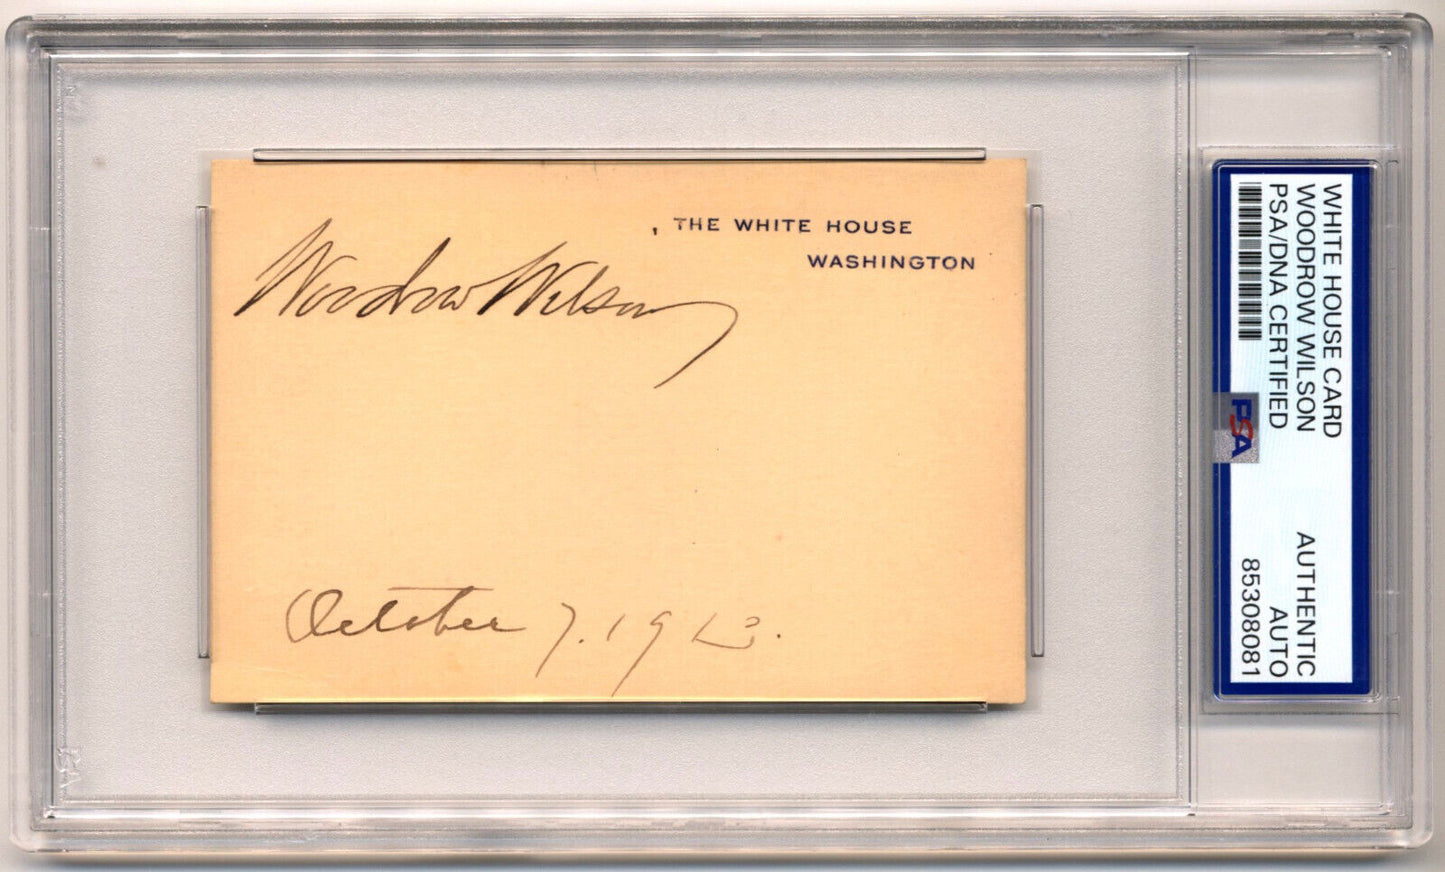 THE WHITE HOUSE
WASHINGTON
Woodrow Wilson
October 7. 1913.
WHITE HOUSE CARD
WOODROW WILSON
PSA/DNA CERTIFIED
AUTHENTIC
AUTO
85308081
PSA
PSA